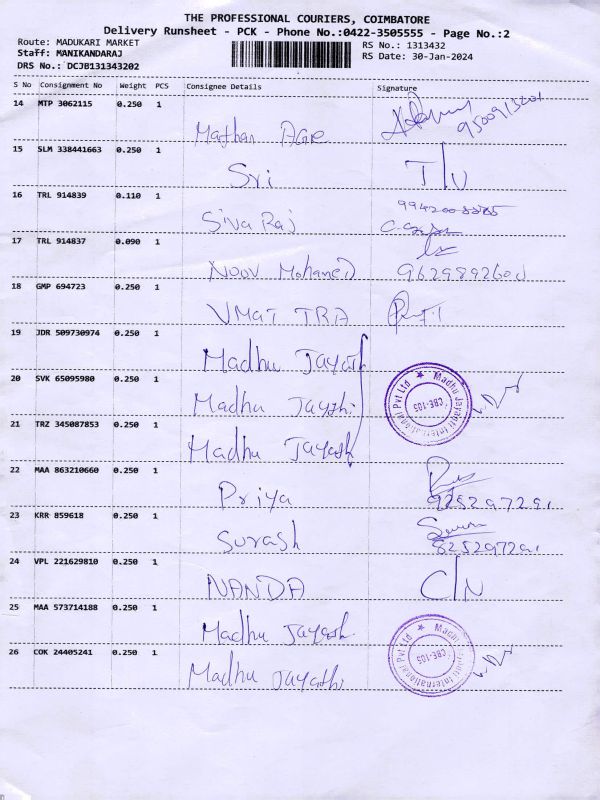 THE PROFESSIONAL COURIERS, COIMBATORE
Delivery Runsheet - PCK - Phone No.:0422-3505555 - Page No.:2
Route: MADUKARI MARKET
Staff: MANIKANDARAJ
DRS No.: DCJB131343202
RS No.: 1313432
RS Date: 30-Jan-2024
S No Consignment No Weight PCS Consignee Details Signature
14 MTP 3062115 0.250 1
Mathan Agre
15 SLM 338441663 0.250 1
Sri T/U
16 TRL 914839 0.110 1
Siva Raj
17 TRL 914837 0.090 1
Noov Mohamed
18 GMP 694723 0.250 1
VMAT TRA
19 JDR 509730974 0.250 1
Madhu Jayath
20 SVK 65095980 0.250 1
Madhu Jayathi
Madhu Jayanti International Pvt Ltd
CBE-105
21 TRZ 345087853 0.250 1
Madhu Jayash
22 MAA 863210660 0.250 1
Priya 9252972291
23 KRR 859618 0.250 1
Surash 8252972291
24 VPL 221629810 0.250 1
NANDA C/N
25 MAA 573714188 0.250 1
Madhu Jayash
26 COK 24405241 0.250 1
Madhu Jayathi
Madhu Jayanti International Pvt Ltd
CBE-105